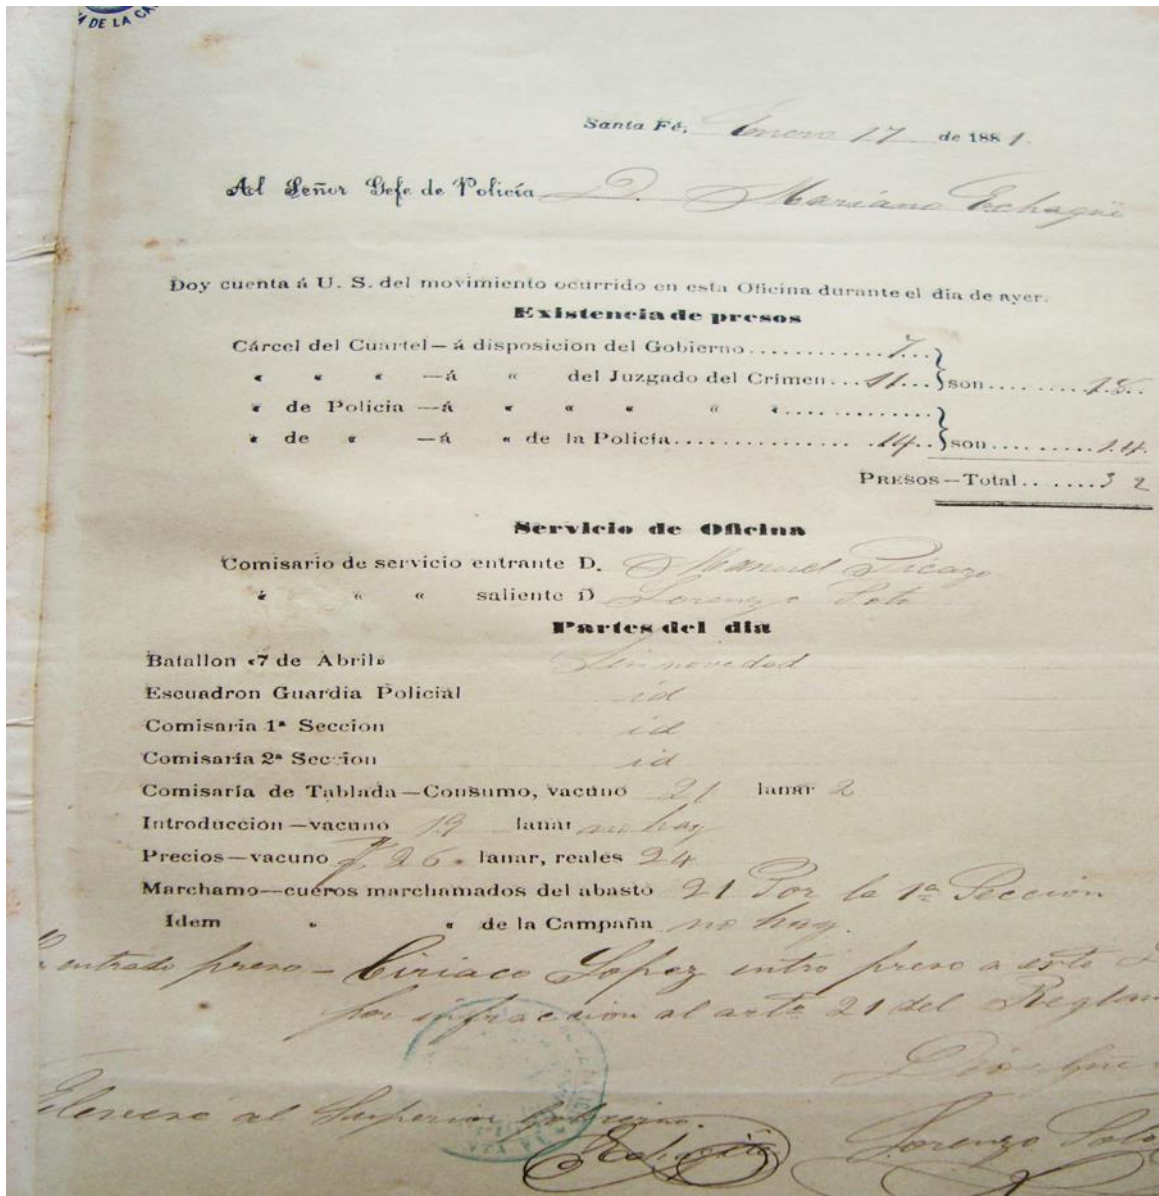 DE LA CA
Santa Fé, Enero 17 de 1881.
Al Señor Gefe de Policía D. Mariano Echagüe
Doy cuenta á U. S. del movimiento ocurrido en esta Oficina durante el dia de ayer.
Existencia de presos
Cárcel del Cuartel—á disposicion del Gobierno............7...}
« « « —á « del Juzgado del Crimen...11...}son.........18..
« de Policia —á « « « « «..............}
« de « —á « de la Policía................14..}son..........14.
PRESOS—Total........32
Servicio de Oficina
Comisario de servicio entrante D. Manuel Picazo
« « « saliente D Lorenzo Soto
Partes del dia
Batallon «7 de Abril» Sin novedad
Escuadron Guardia Policial id
Comisaria 1ª Seccion id
Comisaría 2ª Seccion id
Comisaría de Tablada—Consumo, vacuno 21 lanar 2
Introducción—vacuno 19 lanar no hay
Precios—vacuno 26. lanar, reales 24
Marchamo—cueros marchamados del abasto 21 Por la 1ª Seccion
Idem « « de la Campaña no hay.
entrado preso - Ciriaco Lopez entró preso a este
por infraccion al arto 21 del Reglam
Dios gue
Elevese al Superior Gobierno.
Echagüe Lorenzo Soto